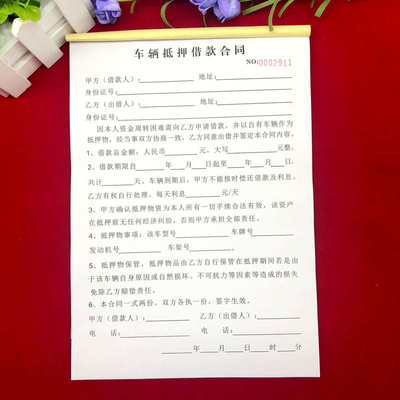 车辆抵押借款合同
NO:0002911
甲方（借款人）：__________地址：__________
身份证号：__________
乙方（出借人）：__________地址：__________
身份证号：__________
因本人资金周转困难需向乙方申请借款，并以自有车辆作为
抵押物，经当事双方协商一致，乙方同意出借并签定本合同内容。
1、借款总金额，人民币________元，大写________元整。
2、借款期限自____年____月____日起至____年____月____日。
共计____天，车辆到期后，甲方不能按时偿还借款及利息，
乙方有权自行处理，每天利息______元/天
3、甲方确认抵押物资为本人所有一切手续合法有效，该资产
在抵押前无任何经济纠纷，否则甲方承担全部责任。
4、抵押物事项：该车型号________车牌号________
发动机号________车架号________。
5、抵押物保管，抵押物品由乙方自行保管在抵押期间若是由
于该车辆自身原因或自然损坏、不可抗力等因素等造成的损失
免除乙方赔偿责任。
6、本合同一式两份，双方各执一份，签字生效。
甲方（借款人）：________ 乙方（出借人）：________
电 话：________ 电 话：________
______年____月____日____时____分